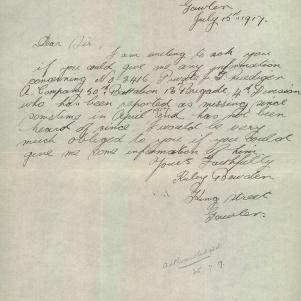 Gawler
July 15th 1917.
Dear Sir,
I am writing to ask you
if you could give me any information
concerning No. 2416 Private F
A Company 50th Battalion 13 Brigade, 4th Division
who has been reported as missing since
sometime in April and has not been
heard of since I would be very
much obliged to you if you could
give me some information of him
Yours Faithfully
Ruby Bowden
King Street
Gawler.
Acknowledged
25.7.7.